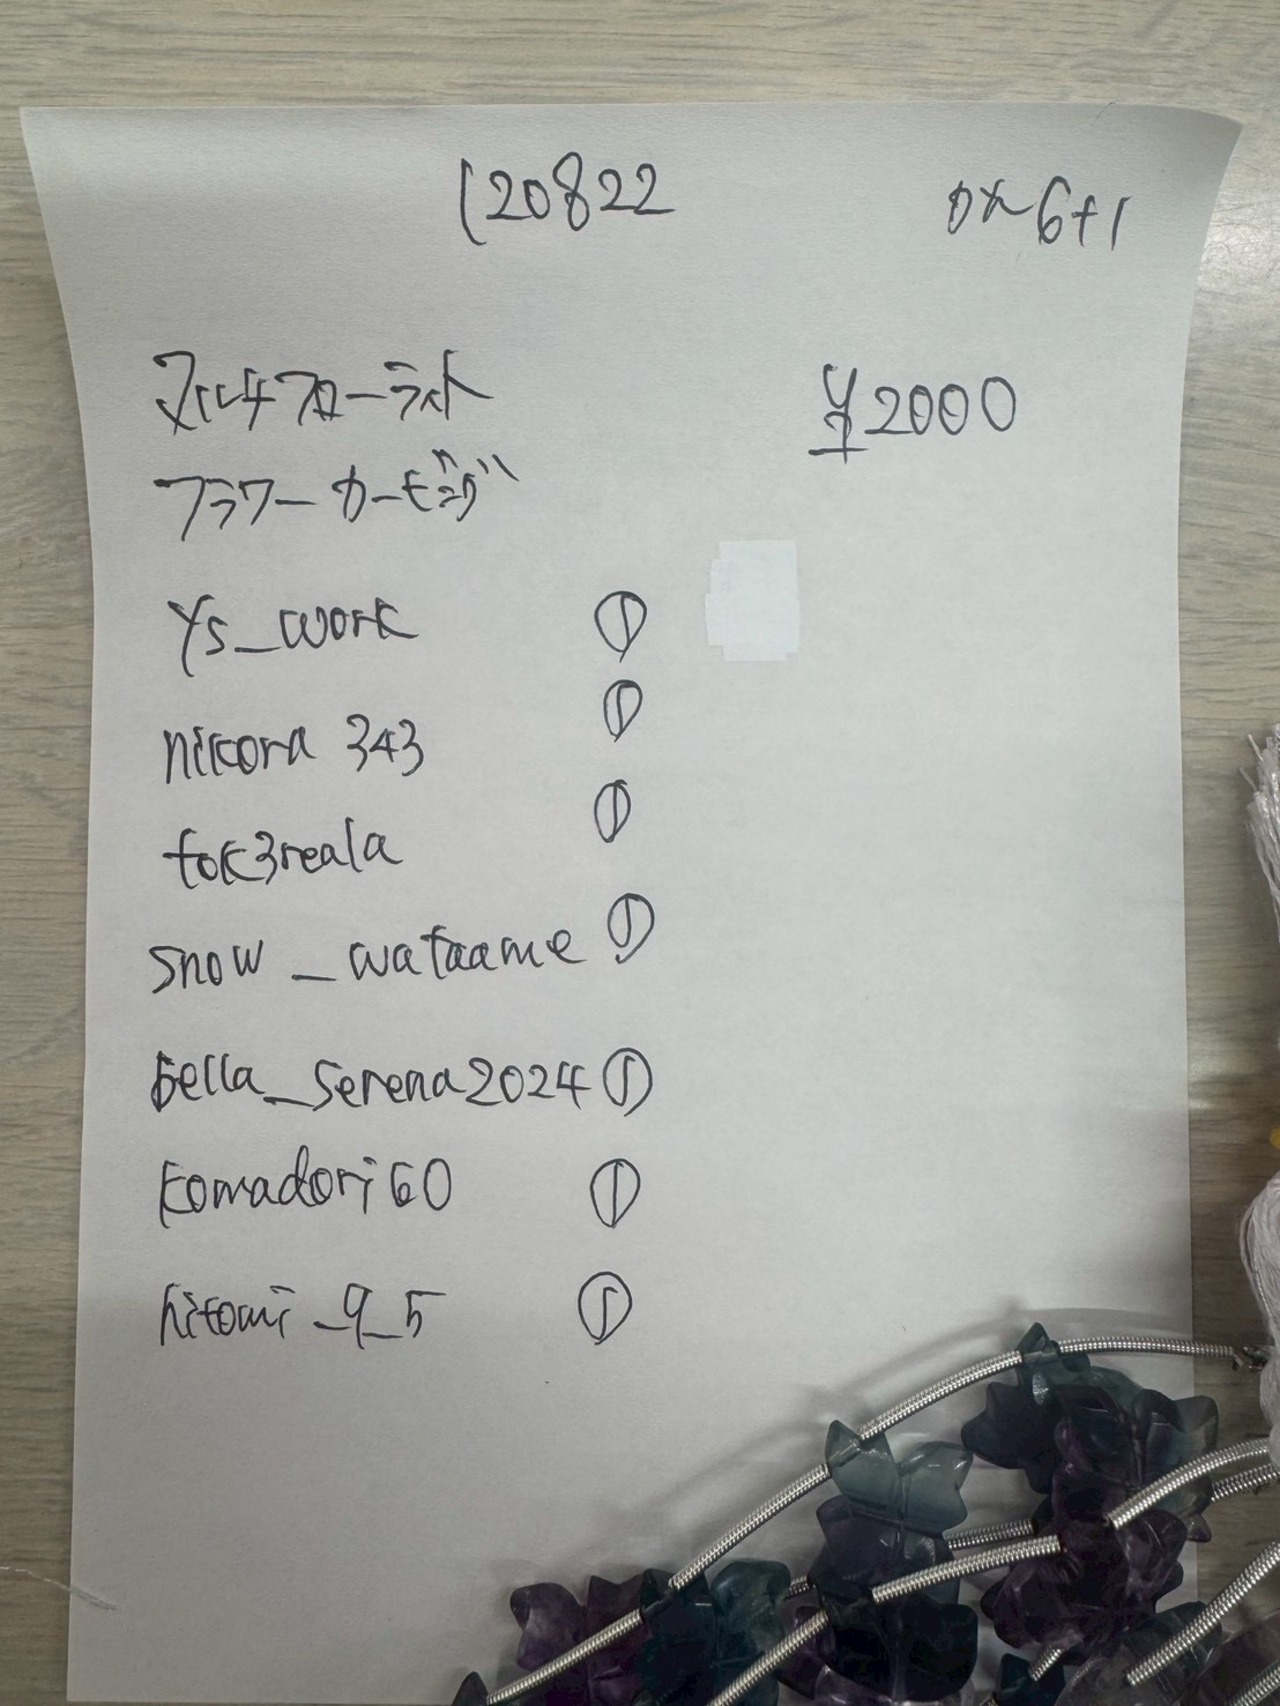 120822
6+1
マルチフローライト
¥2000
フラワーカービング
Ys_work ①
nikora 343 ①
tok3reala ①
snow_wataame ①
bella_serena2024 ①
komadori60 ①
hitomi_9_5 ①